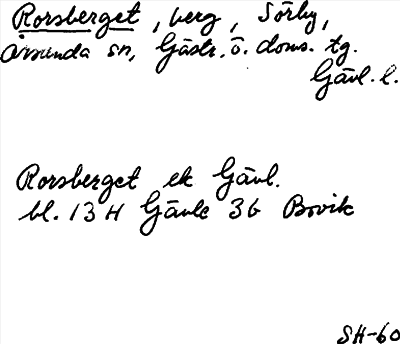 Rorsberget, berg, Sörby,
Årsunda sn, Gästr. ö. doms. tg.
Gävl. l.
Rorsberget ek Gävl.
bl. 13 H Gävle 3 b Bovik
SH-60